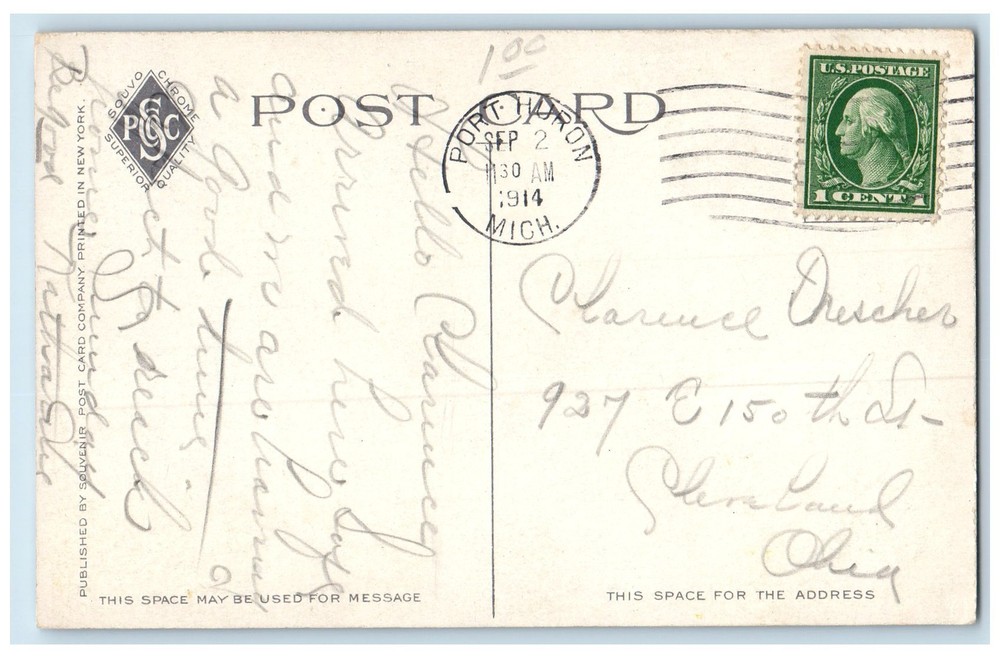 1 00
POST CARD
SOUVO CHROME
SPCC
SUPERIOR QUALITY
PORT HURON
SEP 2
1130 AM
1914
MICH.
U.S. POSTAGE
1 CENT 1
Hello Clarence
Arrived here safe
and we are having
a good time
Expect to reach
home Sunday
Before Nathalie
Clarence Drescher
927 E 150th St-
Cleveland
Ohio
PUBLISHED BY SOUVENIR POST CARD COMPANY. PRINTED IN NEW YORK.
THIS SPACE MAY BE USED FOR MESSAGE
THIS SPACE FOR THE ADDRESS